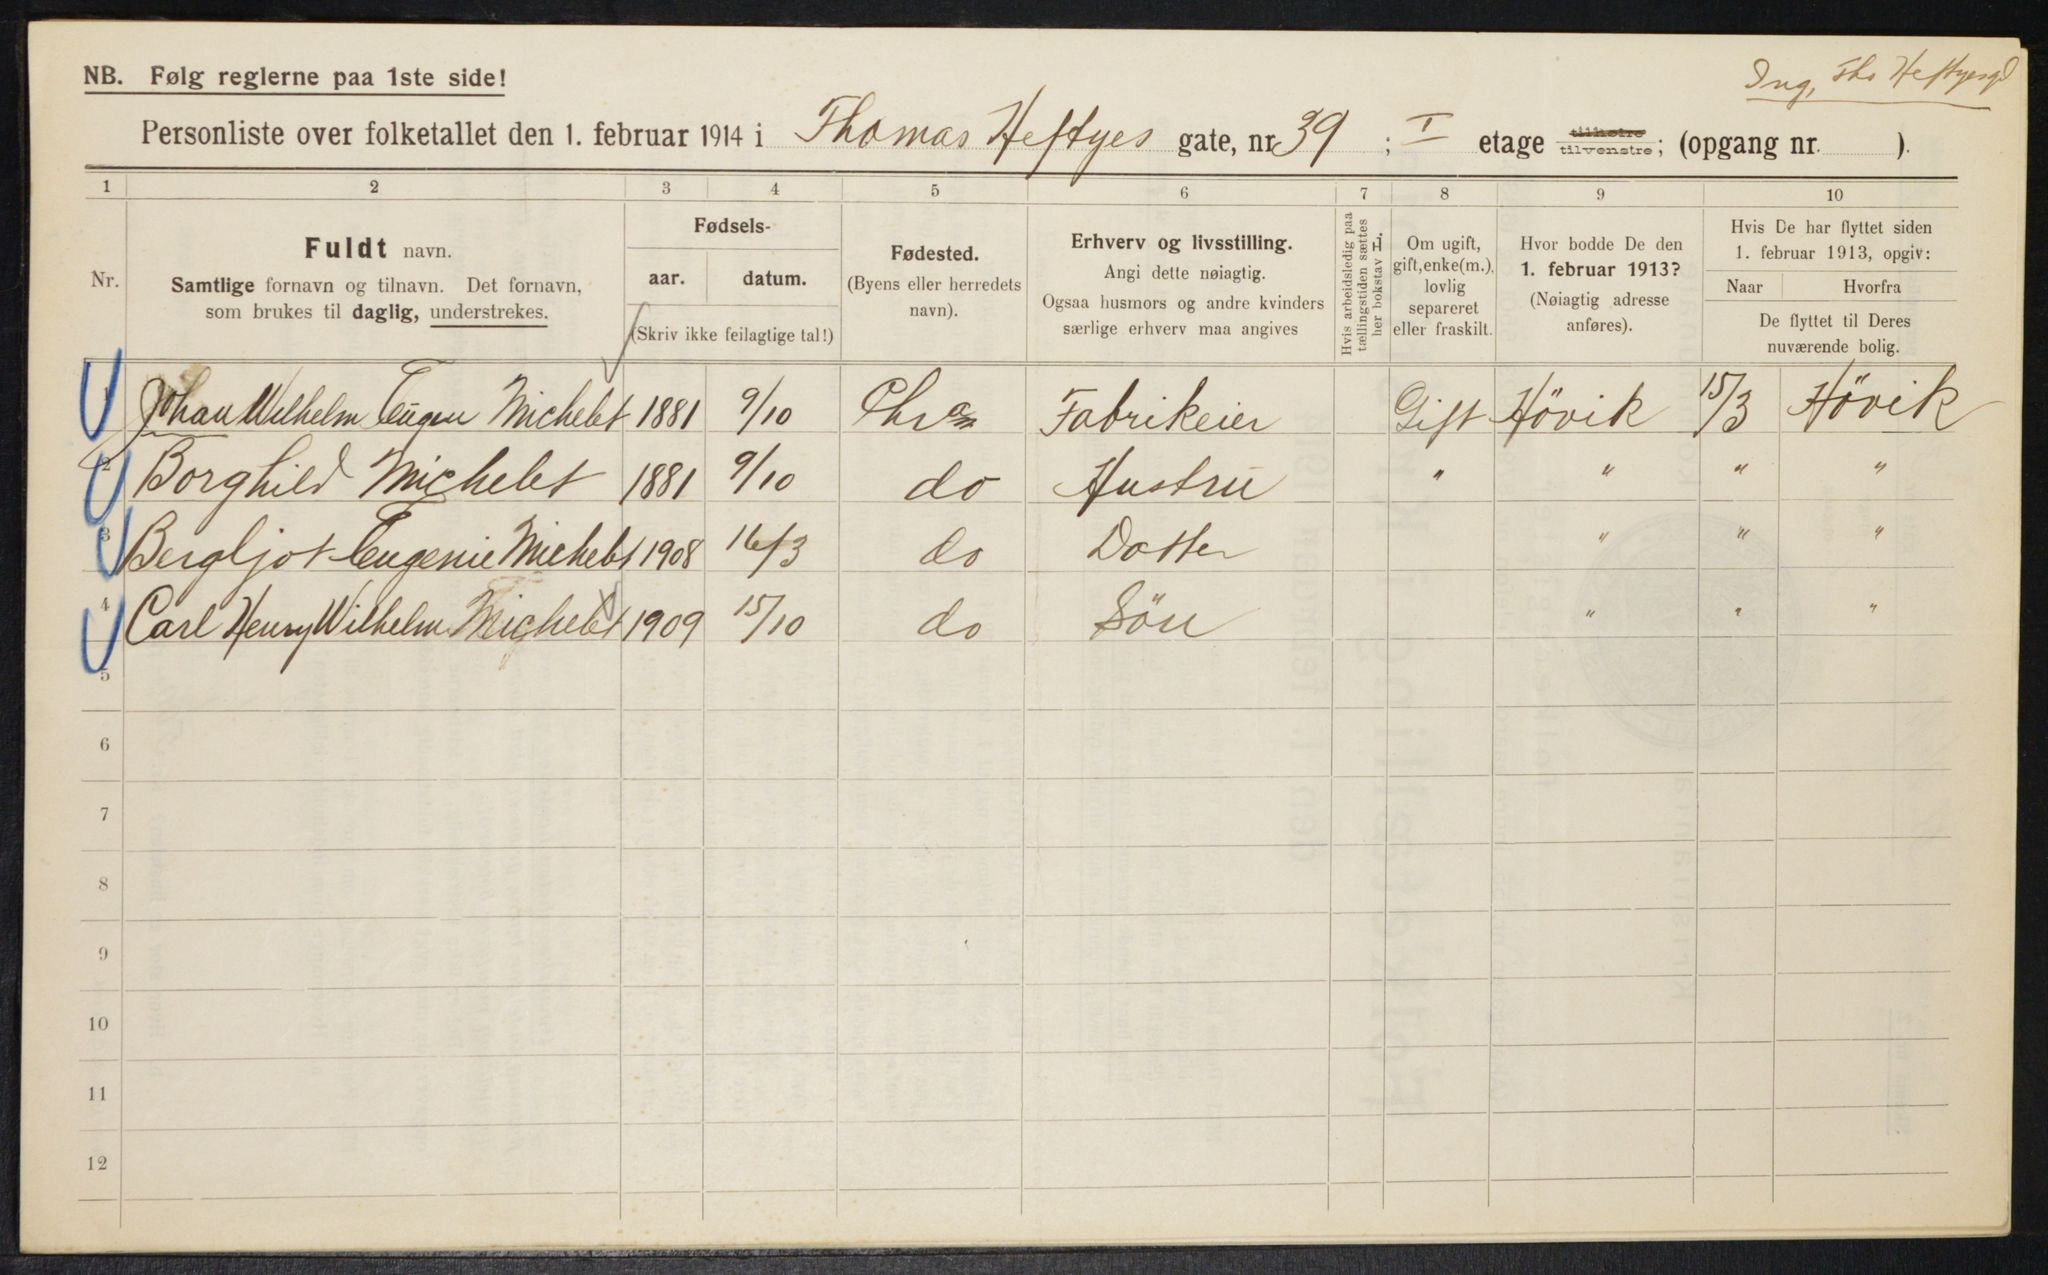 Ing. Ths Heftyesgd
NB. Følg reglerne paa 1ste side!
Personliste over folketallet den 1. februar 1914 i Thomas Heftyes gate, nr. 39 ; I etage tilhøire tilvenstre; (opgang nr. ).
1 2 3 4 5 6 7 8 9 10
Nr.
Fuldt navn.
Samtlige fornavn og tilnavn. Det fornavn,
som brukes til daglig, understrekes.
Fødsels-
aar. datum.
(Skriv ikke feilagtige tal!)
Fødested.
(Byens eller herredets
navn).
Erhverv og livsstilling.
Angi dette nøiagtig.
Ogsaa husmors og andre kvinders
særlige erhverv maa angives
Hvis arbeidsledig paa
tællingstiden sættes
her bokstav L.
Om ugift,
gift, enke(m.),
lovlig
separeret
eller fraskilt.
Hvor bodde De den
1. februar 1913?
(Nøiagtig adresse
anføres).
Hvis De har flyttet siden
1. februar 1913, opgiv:
Naar Hvorfra
De flyttet til Deres
nuværende bolig.
1 Johan Wilhelm Eugen Michelet 1881 9/10 Chra Fabrikeier Gift Hövik 15/3 Hövik
2 Borghild Michelet 1881 9/10 do Hustru " " " "
3 Bergljot Eugenie Michelet 1908 16/3 do Datter " " "
4 Carl Henry Wilhelm Michelet 1909 15/10 do Sön " " "
5
6
7
8
9
10
11
12